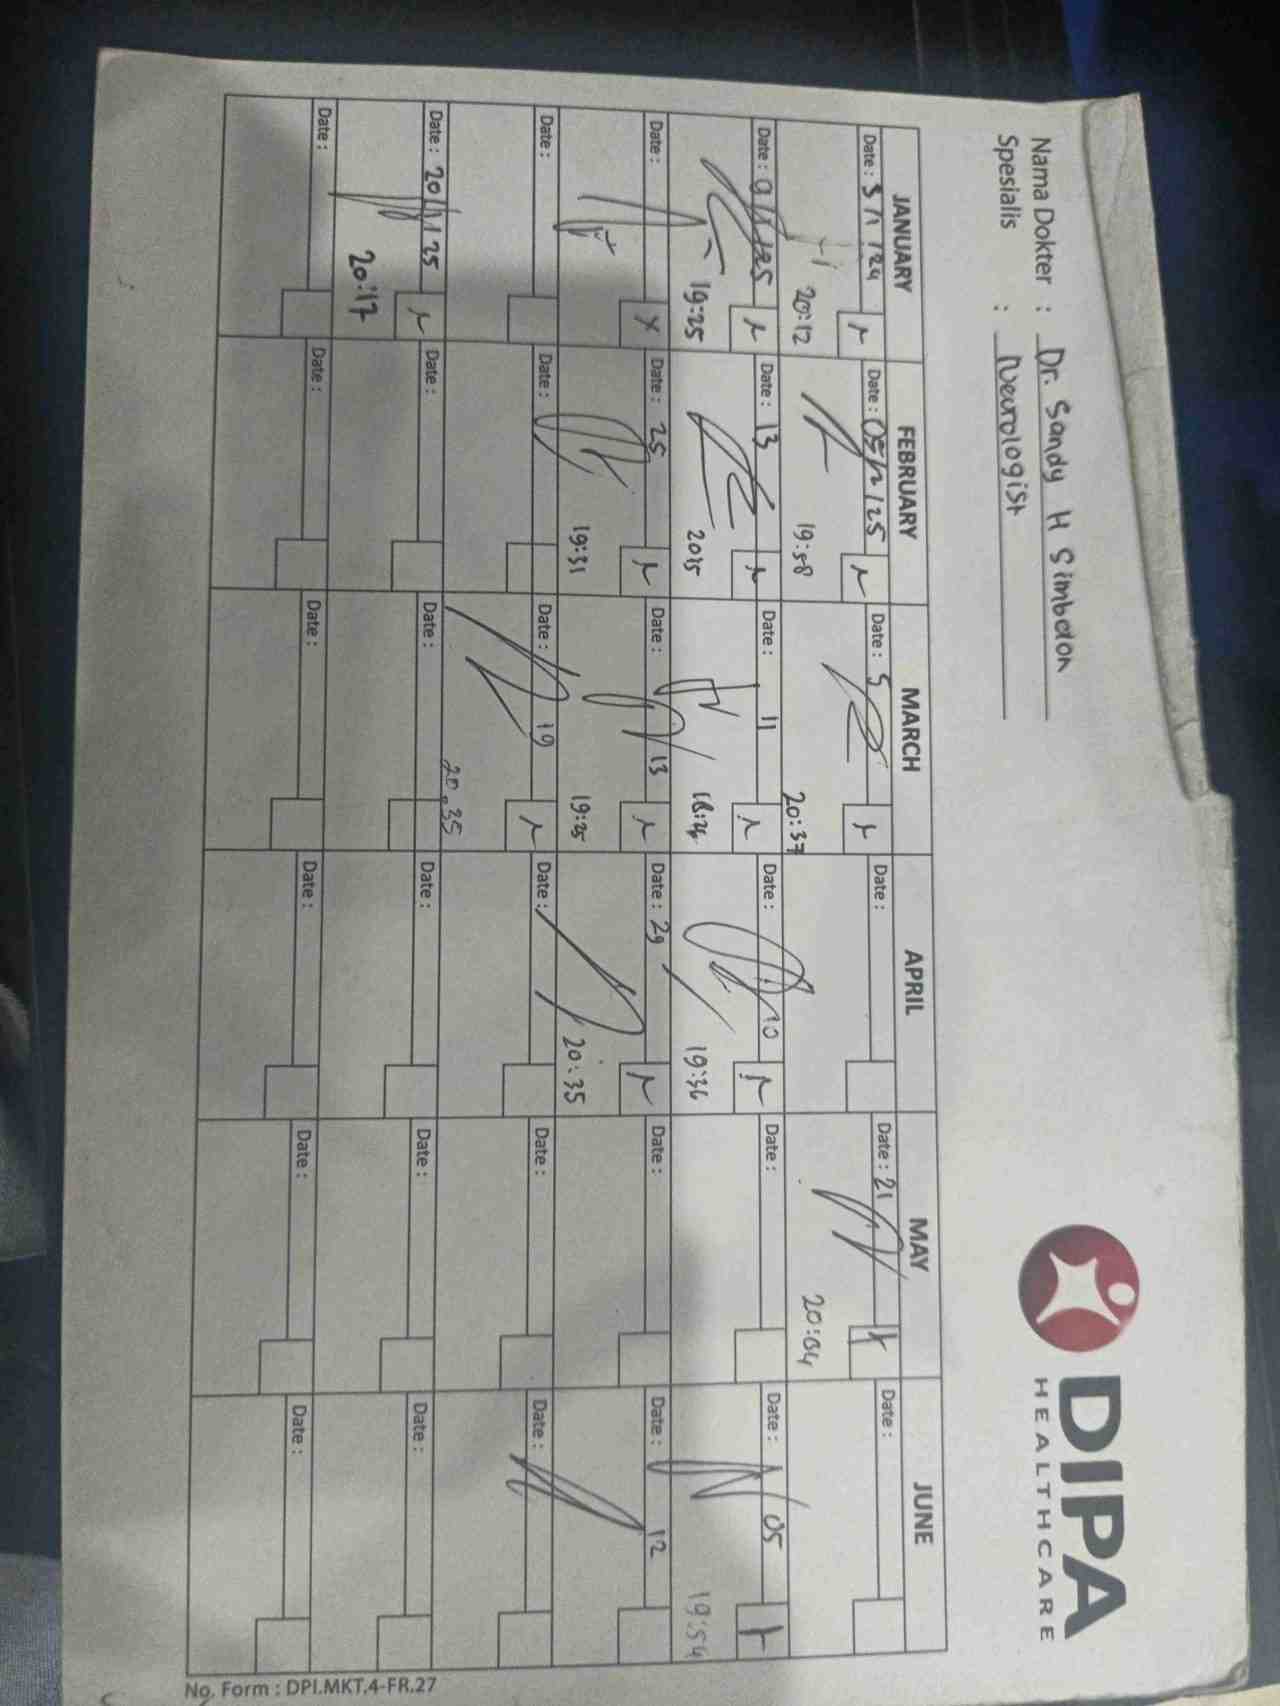 DIPA
HEALTHCARE
Nama Dokter : Dr. Sandy H Simbolon
Spesialis : Neurologist
JANUARY FEBRUARY MARCH APRIL MAY JUNE
Date : 3/1/24 Date : 05/2/25 Date : 5 Date : Date : 21 Date :
20:12 19:58 20:37 20:04
Date : 9/1/25 Date : 13 Date : 11 Date : 10 Date : Date : 05
19:25 2015 19:36 19:54
Date : Date : 25 Date : 13 Date : 29 Date : Date : 12
19:31 19:25 20:35
Date : Date : Date : 19 Date : Date : Date :
20.35
Date : 20/1/25 Date : Date : Date : Date : Date :
20:17
Date : Date : Date : Date : Date : Date :
No. Form : DPI.MKT.4-FR.27